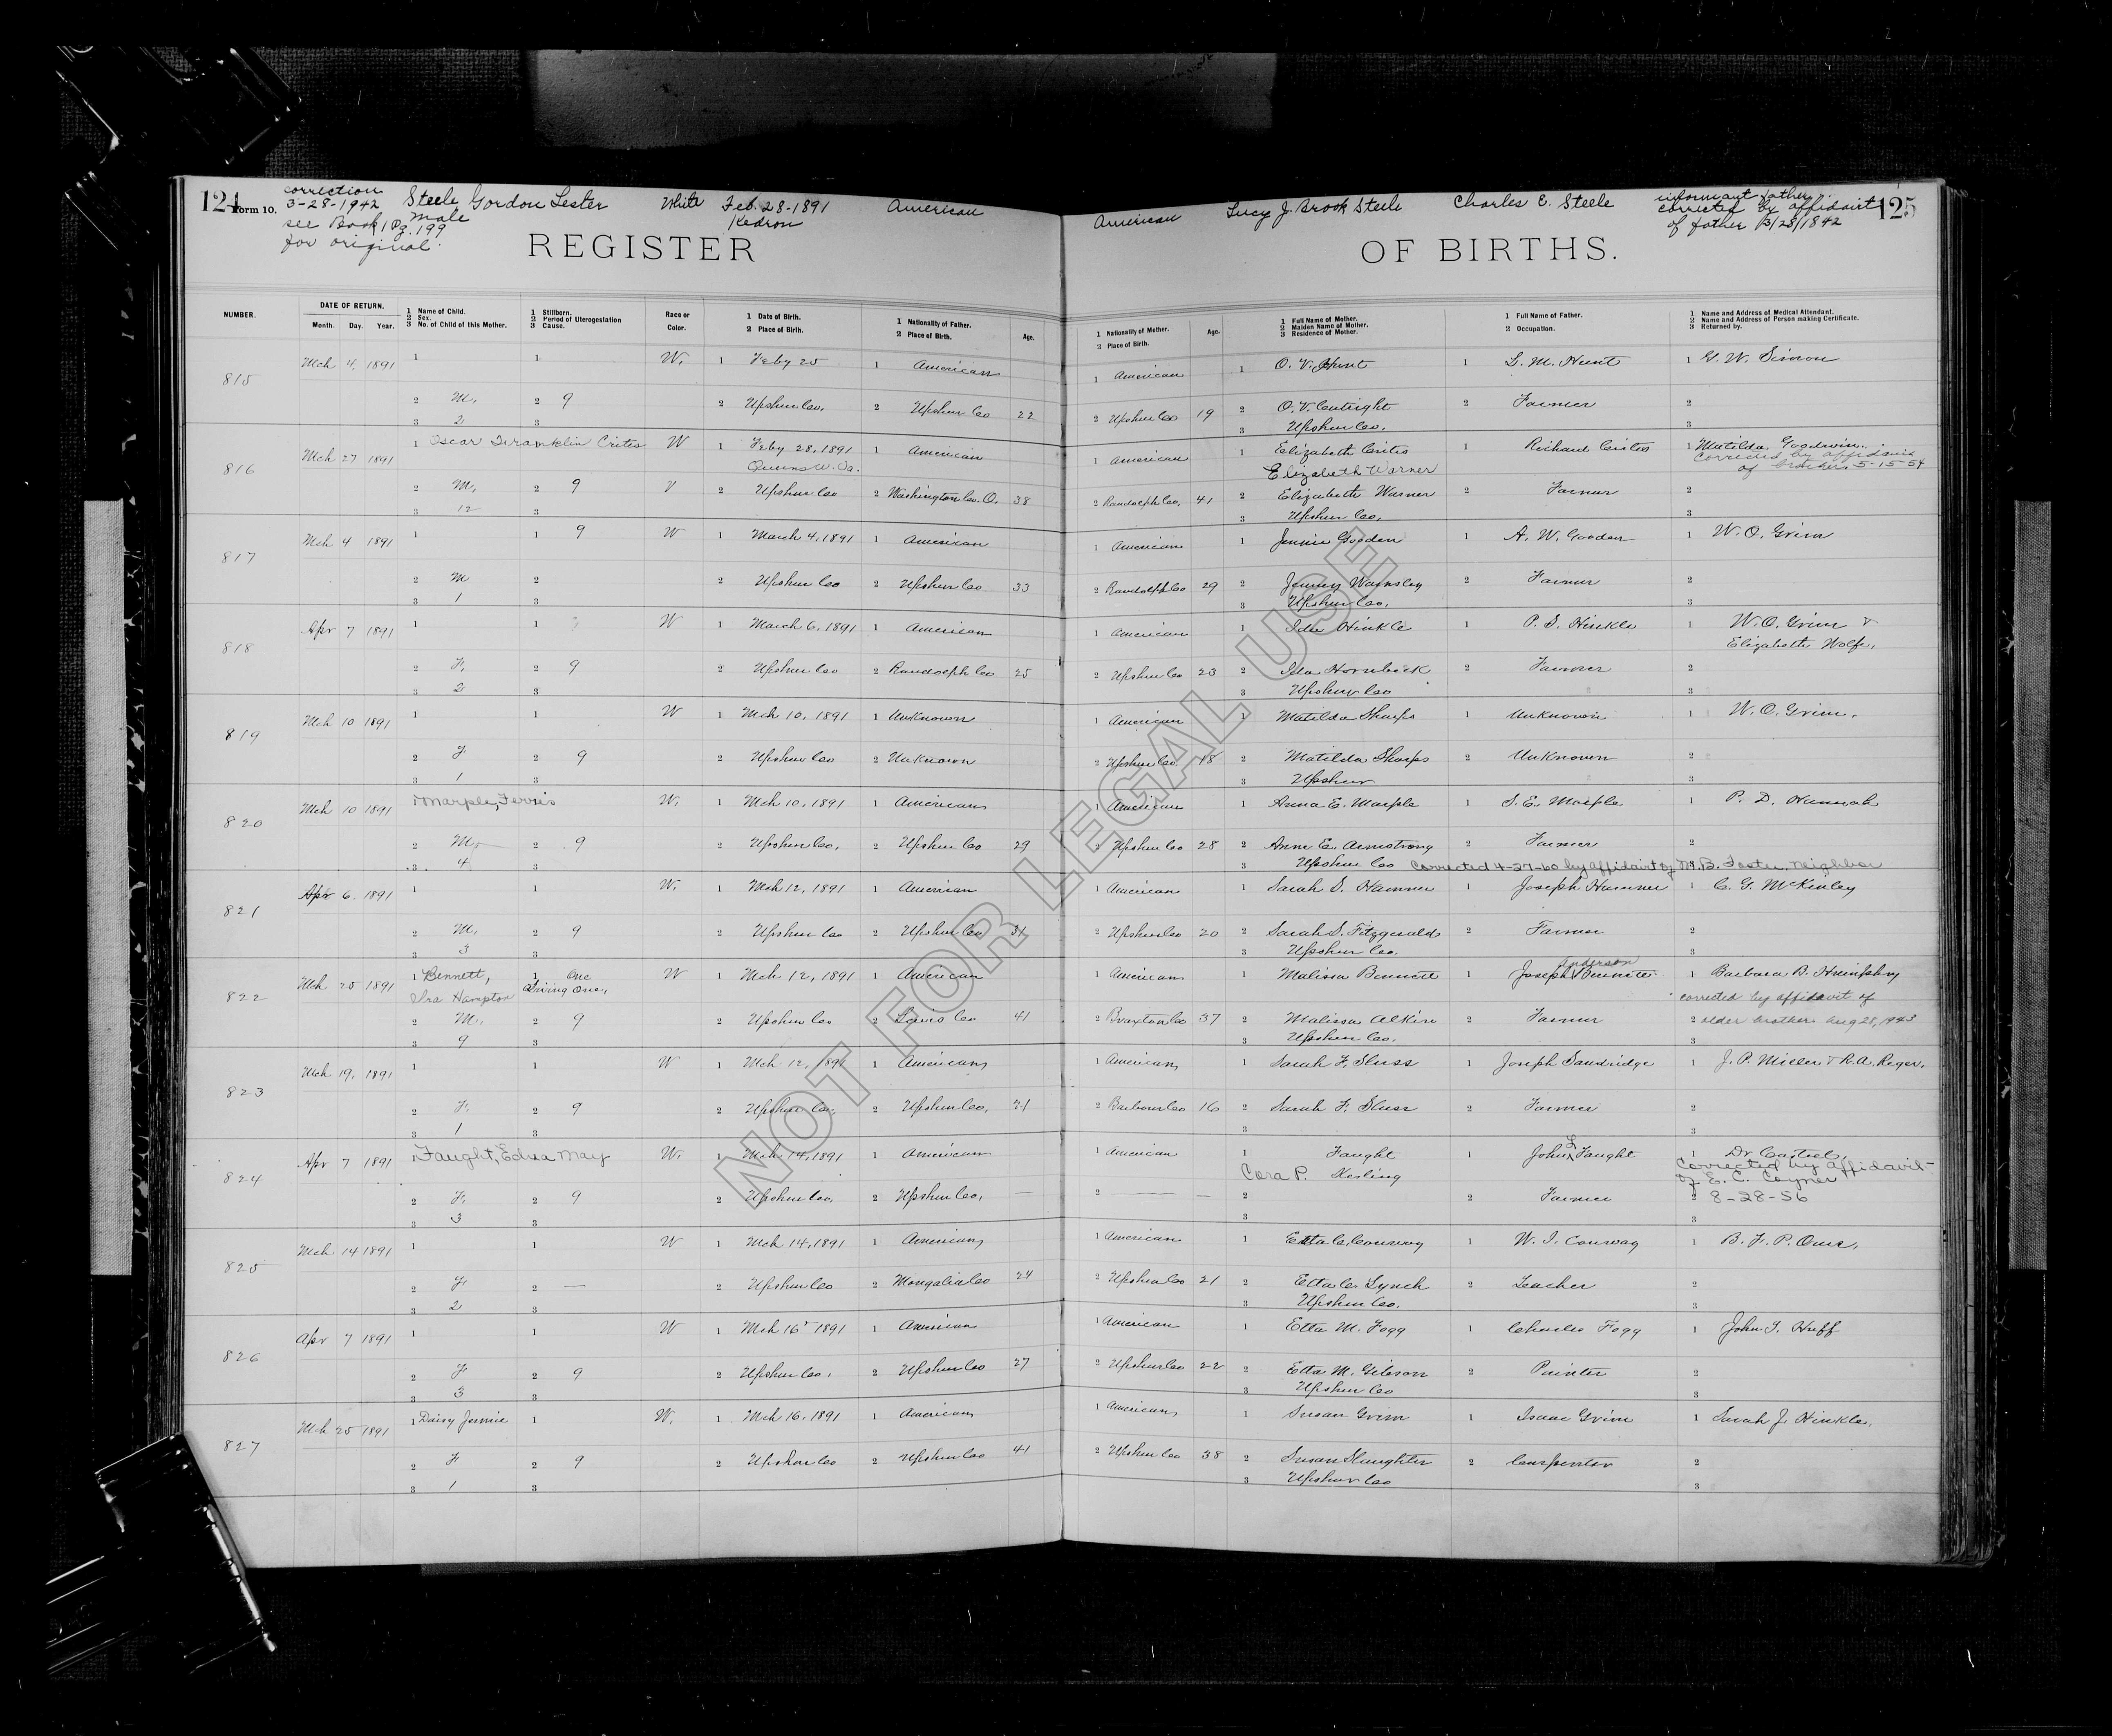 124
Form 10.
correction
3-28-1942
see Book 1 Pg. 199
for original.
Steele Gordon Lester
Male
White
Feb. 28-1891
Kedron
American
American
Lucy J. Brook Steele
Charles E. Steele
informant father.
corrected by affidavit
of father 3/28/1842
125
REGISTER
OF BIRTHS.
NUMBER.
DATE OF RETURN.
Month. Day. Year.
1 Name of Child.
2 Sex.
3 No. of Child of this Mother.
1 Stillborn.
2 Period of Uterogestation
3 Cause.
Race or
Color.
1 Date of Birth.
2 Place of Birth.
1 Nationality of Father.
2 Place of Birth.
Age.
1 Nationality of Mother.
2 Place of Birth.
Age.
1 Full Name of Mother.
2 Maiden Name of Mother.
3 Residence of Mother.
1 Full Name of Father.
2 Occupation.
1 Name and Address of Medical Attendant.
2 Name and Address of Person making Certificate.
3 Returned by.
815 Mch 4, 1891 1 1 W. 1 Feby 25 1 American 1 American 1 O. V. Hunt 1 L. M. Hunt 1 G. W. Simon
2 M. 2 9 2 Upshur Co. 2 Upshur Co 22 2 Upshur Co 19 2 O. V. Cutright 2 Farmer 2
3 2 3 3 Upshur Co.
816 Mch 27 1891 1 Oscar Franklin Crites W 1 Feby 28, 1891 1 American 1 American 1 Elizabeth Crites 1 Richard Crites 1 Matilda Goodwin.
Queens W. Va. Elizabeth Warner corrected by affidavit
of brother, 5-15-54
2 M. 2 9 V 2 Upshur Co 2 Washington Co. O. 38 2 Randolph Co. 41 2 Elizabeth Warner 2 Farmer 2
3 12 3 3 Upshur Co. 3
817 Mch 4 1891 1 1 9 W 1 March 4, 1891 1 American 1 American 1 Jennie Gooden 1 A. W. Gooden 1 W. O. Grim
2 M 2 2 Upshur Co 2 Upshur Co 33 2 Randolph Co 29 2 Jenny Wamsley 2 Farmer 2
3 1 3 3 Upshur Co. 3
818 Apr 7 1891 1 1 W 1 March 6, 1891 1 American 1 American 1 Ida Hinkle 1 P. S. Hinkle 1 W. O. Grim &
Elizabeth Wolfe,
2 F. 2 9 2 Upshur Co 2 Randolph Co 25 2 Upshur Co 23 2 Ida Hornbeck 2 Farmer 2
3 2 3 3 Upshur Co 3
819 Mch 10 1891 1 1 W 1 Mch 10, 1891 1 Unknown 1 American 1 Matilda Sharps 1 Unknown 1 W. O. Grim,
2 F 2 9 2 Upshur Co 2 Unknown 2 Upshur Co. 18 2 Matilda Sharps 2 Unknown 2
3 1 3 3 Upshur 3
820 Mch 10 1891 1 Marple, Ferris W. 1 Mch 10, 1891 1 American 1 American 1 Anna E. Marple 1 S. E. Marple 1 P. D. Hannah
2 M. 2 9 2 Upshur Co. 2 Upshur Co 29 2 Upshur Co 28 2 Anna E. Armstrong 2 Farmer 2
3 4 3 3 Upshur Co Corrected 4-27-60 by affidavit of M. B. Foster, neighbor
821 Apr 6. 1891 1 1 W. 1 Mch 12, 1891 1 American 1 American 1 Sarah S. Hamner 1 Joseph Hamner 1 C. G. McKinley
2 M. 2 9 2 Upshur Co 2 Upshur Co 31 2 Upshur Co 20 2 Sarah S. Fitzgerald 2 Farmer 2
3 3 3 3 Upshur Co. 3
822 Mch 25 1891 1 Bennett, 1 One W 1 Mch 12, 1891 1 American 1 American 1 Malissa Bennett 1 Joseph Anderson Bennett. 1 Barbara B. Humphry
Ira Hampton Living One, corrected by affidavit of
2 M. 2 9 2 Upshur Co 2 Lewis Co 41 2 Braxton Co 37 2 Malissa Alkire 2 Farmer 2 older brother Aug 28, 1943
3 9 3 3 Upshur Co. 3
823 Mch 19, 1891 1 1 W 1 Mch 12, 1891 1 American 1 American 1 Sarah F. Sluss 1 Joseph Sandridge 1 J. P. Miller & R. A. Reger,
2 F. 2 9 2 Upshur Co. 2 Upshur Co. 21 2 Barbour Co 16 2 Sarah F. Sluss 2 Farmer 2
3 1 3 3 3
824 Apr 7 1891 1 Faught, Edna May W. 1 Mch 14, 1891 1 American 1 American 1 Faught 1 John L Faught 1 Dr
Cora P. Hesling Corrected by affidavit
of E. C. Coyner
2 F. 2 9 2 Upshur Co. 2 Upshur Co. — 2 — — 2 2 Farmer 2 8-28-56
3 3 3 3 3
825 Mch 14 1891 1 1 W 1 Mch 14, 1891 1 American 1 American 1 Etta C. Conway 1 W. I. Conway 1 B. F. P.
2 F 2 — 2 Upshur Co 2 Mongalia Co 24 2 Upshur Co 21 2 Etta C. Lynch 2 Teacher 2
3 2 3 3 Upshur Co. 3
826 Apr 7 1891 1 1 W 1 Mch 16" 1891 1 American 1 American 1 Etta M. Fogg 1 Charles Fogg 1 John I. Huff
2 F 2 9 2 Upshur Co. 2 Upshur Co 27 2 Upshur Co 22 2 Etta M. Gibson 2 Painter 2
3 3 3 3 Upshur Co 3
827 Mch 25 1891 1 Daisy Jennie 1 W. 1 Mch 16, 1891 1 American 1 American, 1 Susan Grim 1 Isaac Grim 1 Sarah J. Hinkle,
2 F 2 9 2 Upshur Co 2 Upshur Co 41 2 Upshur Co 38 2 Susan Slaughter 2 Carpenter 2
3 1 3 3 Upshur Co 3
NOT FOR LEGAL USE